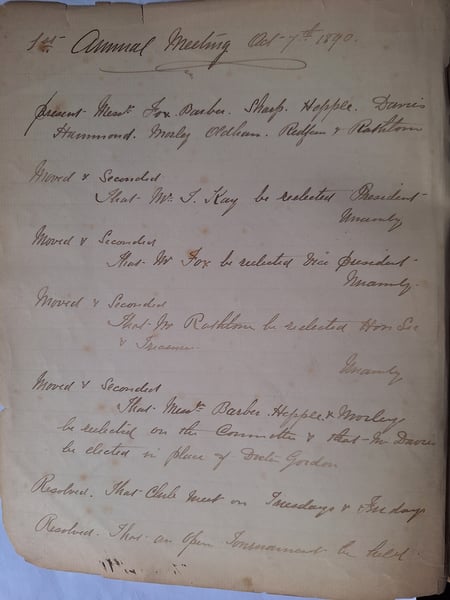 1st Annual Meeting Oct 7th 1890.
present Messrs Fox Barber. Sharp. Hepple. Davies
Hammond. Morley Oldham. Redfern & Rashtom
Moved & Seconded
That Mr. T. Kay be reelected President
Unamly
Moved & Seconded
That Mr Fox be reelected Vice president
Unamly.
Moved & Seconded
That Mr Rashtom be reelected Hon Sec
& Treasurer
Unamly
Moved & Seconded
That Messrs Barber. Hepple & Morley
be reelected on the Committee & that Mr Davies
be elected in place of Doctor Gordon
Resolved. That Club Meet on Tuesdays & Fridays
Resolved. That an Open Tournament be held